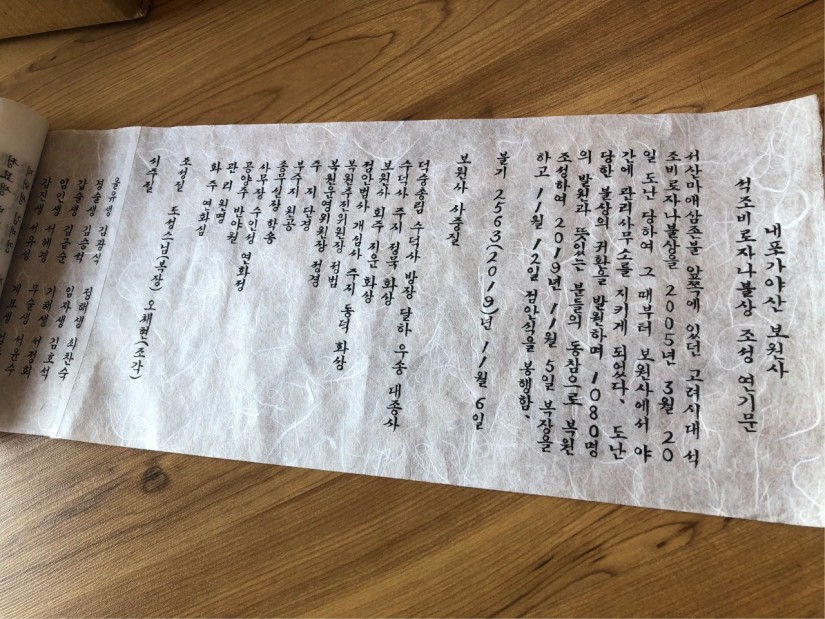 내포가야산 보원사
석조비로자나불상 조성 연기문
서산마애삼존불 앞쪽에 있던 고려시대 석
조비로자나불상을 2005년 3월 20
일 도난 당하여 그 때부터 보원사에서 야
간에 관리사무소를 지키게 되었다. 도난
당한 불상의 귀환을 발원하며 1080명
의 발원과 뜻있는 분들의 동참으로 복원
조성하여 2019년 11월 5일 복장을
하고 11월 12일 점안식을 봉행함.
불기 2563(2019)년 11월 6일
보원사 사중질
덕숭총림 수덕사 방장 달하 우송 대종사
수덕사 주지 정묵 화상
보원사 회주 지운 화상
점안법사 개심사 주지 동덕 화상
복원추진위원장 정법
복원운영위원장 정경
주지 단경
부주지 원공
종무실장 학송
사무장 수인성 연화정
공양주 반야월
관리 원명
화주 연화심
조성질 도성스님(복장) 오채현(조각)
시주질
을유생 김광식
경술생 김승학 정해생 최찬숙
갑술생 김금순 임자생 김호석
임인생 서해경 기해생 서정희
갑진생 서유일 무술생 서윤수